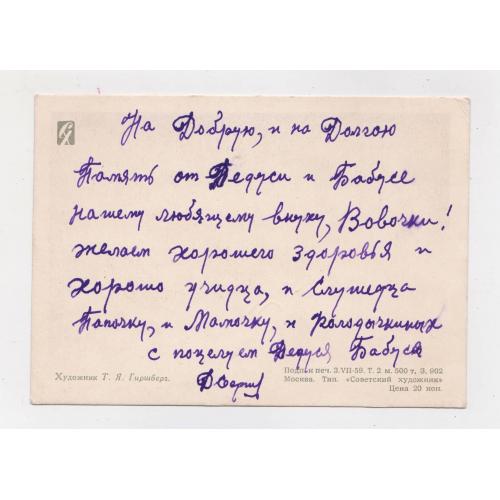 На Добрую, и на Долгою
Память от Дедуси и Бабусе
нашему любящему внуку, Вовочки!
желаем хорошего здоровья и
хорошо учидца, и слушедца
Папочку, и Мамочку, и
с поцелуем Дедуся Бабуся
Художник Т. Я. Гиршберг.
Подп. к печ. 3.VII-59. Т. 2 м. 500 т. З. 902
Москва. Тип. «Советский художник»
Цена 20 коп.